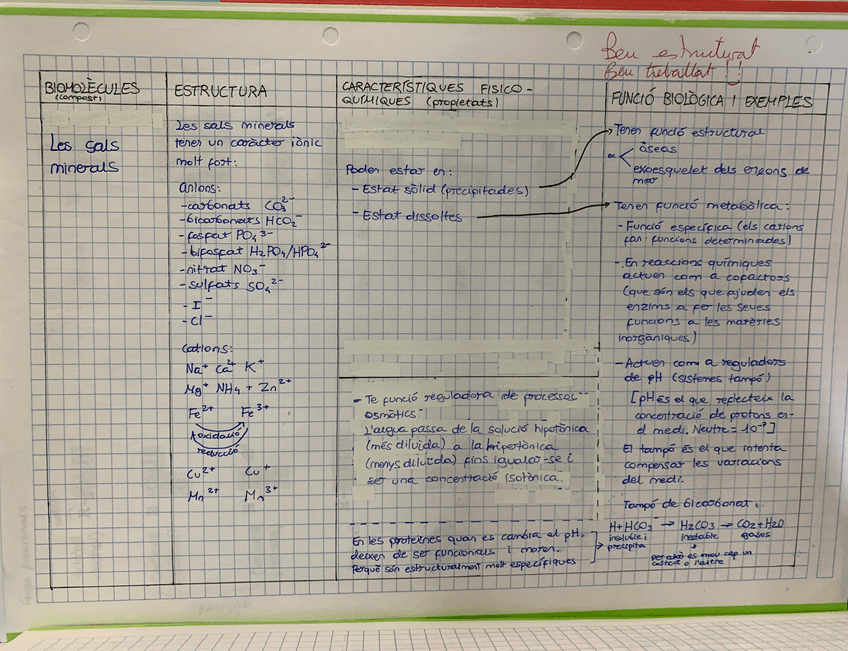 Ben estructurat
Ben treballat!!
BIOMOLÈCULES
(compost)
ESTRUCTURA
CARACTERÍSTIQUES FISICO-
QUÍMIQUES (propietats)
FUNCIÓ BIOLÒGICA I EXEMPLES
Les sals
minerals
Les sals minerals
tenen un caràcter iònic
molt fort:
anions:
-carbonats CO₃²⁻
-bicarbonats HCO₂⁻
-fosfat PO₄³⁻
-bifosfat H₂PO₄/HPO₄²⁻
-nitrat NO₃⁻
-sulfats SO₄²⁻
-I⁻
-Cl⁻
Cations:
Na⁺ Ca²⁺ K⁺
Mg⁺ NH₄ + Zn²⁺
Fe²⁺ Fe³⁺
oxidació
reducció
Cu²⁺ Cu⁺
Mn²⁺ Mn³⁺
Poden estar en:
- Estat sòlid (precipitades)
- Estat dissoltes
- Te funció reguladora de processos
osmòtics
L'aigua passa de la solució hipotònica
(més diluida) a la hipertònica
(menys diluida) fins igualar-se i
ser una concentració isotònica.
En les proteïnes quan es cambia el pH,
deixen de ser funcionals i moren.
Perquè són estructuralment molt específiques
Tenen funció estructural
òseas
exoesquelet dels eriçons de
mar
Tenen funció metabòlica:
- Funció específica (els cations
fan funcions determinades)
- En reaccions químiques
actuen com a cofactors
(que són els que ajuden els
enzims a fer les seves
funcions a les matèries
inorgàniques)
- Actuen com a reguladors
de pH (sistemes tampó)
[pH és el que reflecteix la
concentració de protons en
el medi. Neutre = 10⁻⁷]
El tampó és el que intenta
compensar les variacions
del medi.
Tampó de bicarbonat.
H+HCO₃ → H₂CO₃ → CO₂+H₂O
insoluble i
precipita
inestable
gasos
per això es mou cap un
costat o l'altre